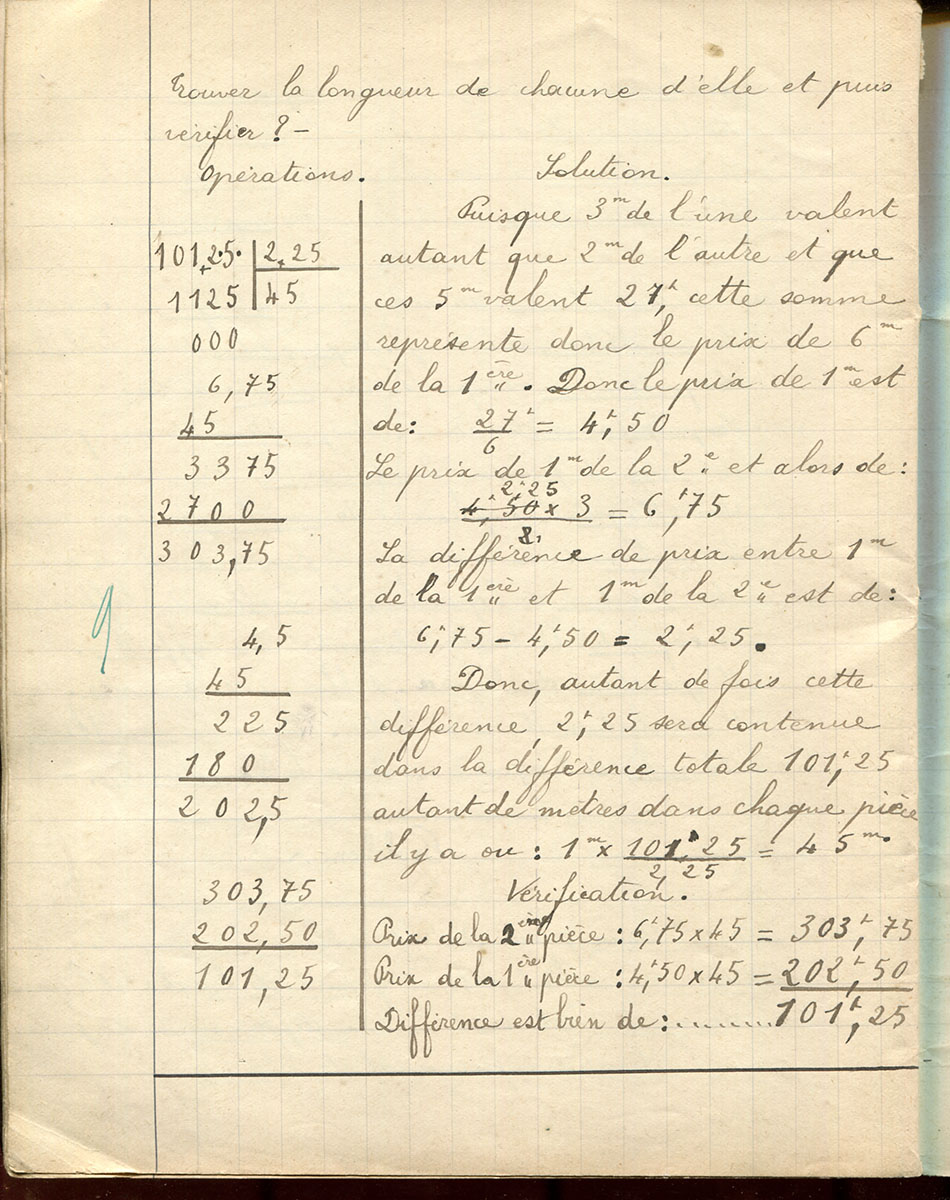 Trouver la longueur de chacune d'elle et puis
vérifier ? –
Opérations.
101,25 | 2,25
1125 | 45
000
6,75
45
3375
2700
303,75
9
4,5
45
225
180
202,5
303,75
202,50
101,25
Solution.
Puisque 3m de l'une valent
autant que 2m de l'autre et que
ces 5m valent 27f, cette somme
représente donc le prix de 6m
de la 1ère. Donc le prix de 1m est
de: 27f/6 = 4f,50
Le prix de 1m de la 2e et alors de:
2f,25
4f,50 x 3 = 6f,75
La différence de prix entre 1m
de la 1ère et 1m de la 2e est de:
6f,75 – 4f,50 = 2f,25.
Donc, autant de fois cette
différence, 2f,25 sera contenue
dans la différence totale 101f,25
autant de mètres dans chaque pièce
il y a ou : 1m x 101f,25 / 2,25 = 45m.
Vérification.
Prix de la 2 pièce : 6f,75 x 45 = 303f,75
Prix de la 1ère pièce : 4f,50 x 45 = 202f,50
Différence est bien de: ........ 101f,25